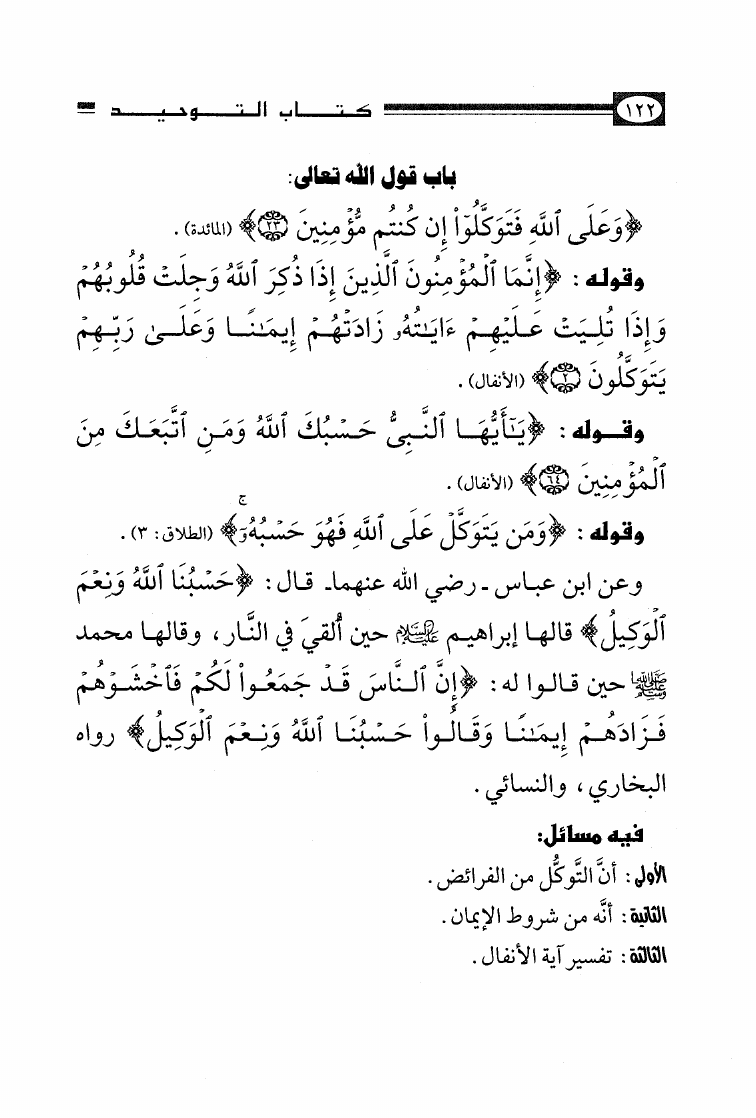 ١٢٢ كتاب التوحيد
باب قول الله تعالى:
﴿وَعَلَى ٱللَّهِ فَتَوَكَّلُوٓاْ إِن كُنتُم مُّؤۡمِنِينَ ٢٣﴾ (المائدة).
وقوله: ﴿إِنَّمَا ٱلۡمُؤۡمِنُونَ ٱلَّذِينَ إِذَا ذُكِرَ ٱللَّهُ وَجِلَتۡ قُلُوبُهُمۡ
وَإِذَا تُلِيَتۡ عَلَيۡهِمۡ ءَايَٰتُهُۥ زَادَتۡهُمۡ إِيمَٰنٗا وَعَلَىٰ رَبِّهِمۡ
يَتَوَكَّلُونَ ٢﴾ (الأنفال).
وقوله: ﴿يَٰٓأَيُّهَا ٱلنَّبِيُّ حَسۡبُكَ ٱللَّهُ وَمَنِ ٱتَّبَعَكَ مِنَ
ٱلۡمُؤۡمِنِينَ ٦٤﴾ (الأنفال).
وقوله: ﴿وَمَن يَتَوَكَّلۡ عَلَى ٱللَّهِ فَهُوَ حَسۡبُهُۥٓۚ﴾ (الطلاق: ٣).
وعن ابن عباس ـ رضي الله عنهما ـ قال: ﴿حَسۡبُنَا ٱللَّهُ وَنِعۡمَ
ٱلۡوَكِيلُ﴾ قالها إبراهيم عليه السلام حين أُلقيَ في النَّار، وقالها محمد
ﷺ حين قالوا له: ﴿إِنَّ ٱلنَّاسَ قَدۡ جَمَعُواْ لَكُمۡ فَٱخۡشَوۡهُمۡ
فَزَادَهُمۡ إِيمَٰنٗا وَقَالُواْ حَسۡبُنَا ٱللَّهُ وَنِعۡمَ ٱلۡوَكِيلُ﴾ رواه
البخاري، والنسائي.
فيه مسائل:
الأولى: أنَّ التَّوكُّل من الفرائض.
الثانية: أنَّه من شروط الإيمان.
الثالثة: تفسير آية الأنفال.